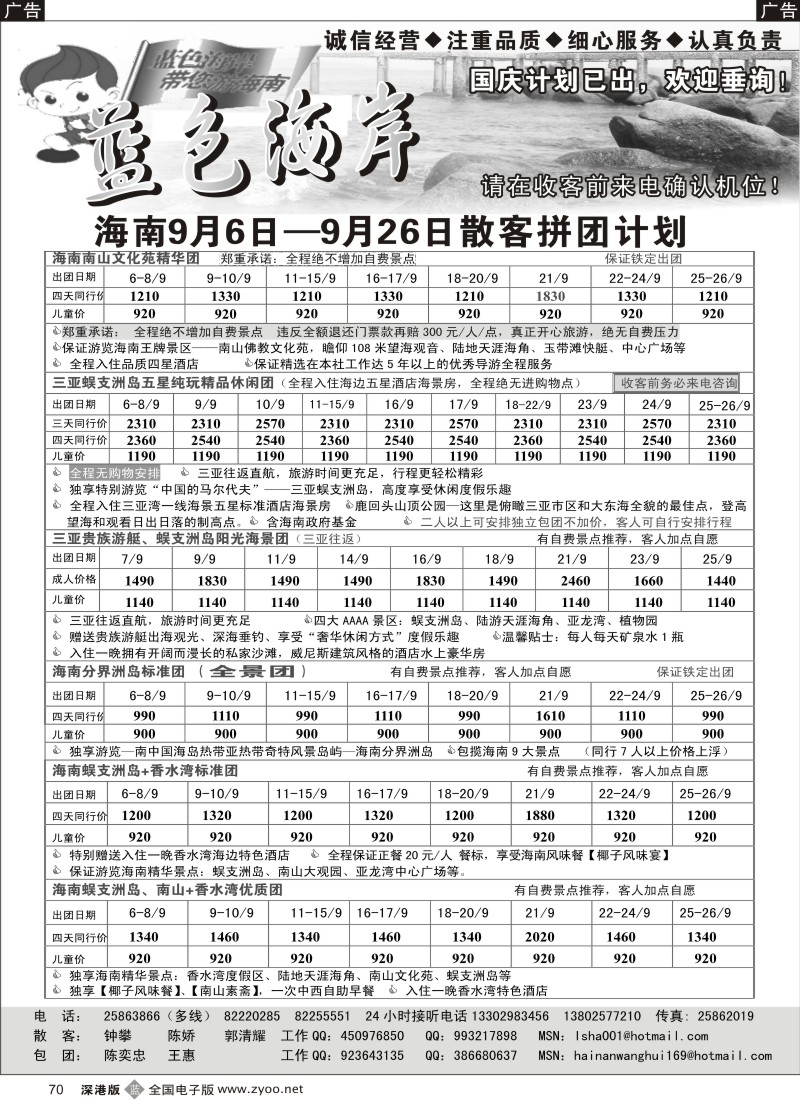 广告
广告
诚信经营◆注重品质◆细心服务◆认真负责
蓝色海岸
带您游海南
国庆计划已出，欢迎垂询！
蓝色海岸
请在收客前来电确认机位！
海南9月6日—9月26日散客拼团计划
海南南山文化苑精华团 郑重承诺：全程绝不增加自费景点 保证铁定出团
出团日期 6-8/9 9-10/9 11-15/9 16-17/9 18-20/9 21/9 22-24/9 25-26/9
四天同行价 1210 1330 1210 1330 1210 1830 1330 1210
儿童价 920 920 920 920 920 920 920 920
郑重承诺： 全程绝不增加自费景点 违反全额退还门票款再赔 300 元/人/点，真正开心旅游，绝无自费压力
保证游览海南王牌景区——南山佛教文化苑，瞻仰 108 米望海观音、陆地天涯海角、玉带滩快艇、中心广场等
全程入住品质四星酒店 保证精选在本社工作达 5 年以上的优秀导游全程服务
三亚蜈支洲岛五星纯玩精品休闲团（全程入住海边五星酒店海景房，全程绝无进购物点） 收客前务必来电咨询
出团日期 6-8/9 9/9 10/9 11-15/9 16/9 17/9 18-22/9 23/9 24/9 25-26/9
三天同行价 2310 2310 2570 2310 2310 2570 2310 2310 2570 2310
四天同行价 2360 2540 2540 2360 2540 2540 2360 2540 2540 2360
儿童价 1190 1190 1190 1190 1190 1190 1190 1190 1190 1190
全程无购物安排 三亚往返直航，旅游时间更充足，行程更轻松精彩
独享特别游览“中国的马尔代夫”——三亚蜈支洲岛，高度享受休闲度假乐趣
全程入住三亚湾一线海景五星标准酒店海景房 鹿回头山顶公园—这里是俯瞰三亚市区和大东海全貌的最佳点，登高
望海和观看日出日落的制高点。 含海南政府基金 二人以上可安排独立包团不加价，客人可自行安排行程
三亚贵族游艇、蜈支洲岛阳光海景团（三亚往返） 有自费景点推荐，客人加点自愿
出团日期 7/9 9/9 11/9 14/9 16/9 18/9 21/9 23/9 25/9
成人价格 1490 1830 1490 1490 1830 1490 2460 1660 1440
儿童价 1140 1140 1140 1140 1140 1140 1140 1140 1140
三亚往返直航，旅游时间更充足 四大 AAAA 景区：蜈支洲岛、陆游天涯海角、亚龙湾、植物园
赠送贵族游艇出海观光、深海垂钓、享受“奢华休闲方式”度假乐趣 温馨贴士：每人每天矿泉水 1 瓶
入住一晚拥有开阔而漫长的私家沙滩，威尼斯建筑风格的酒店水上豪华房
海南分界洲岛标准团（全景团） 有自费景点推荐，客人加点自愿 保证铁定出团
出团日期 6-8/9 9-10/9 11-15/9 16-17/9 18-20/9 21/9 22-24/9 25-26/9
四天同行价 990 1110 990 1110 990 1610 1110 990
儿童价 900 900 900 900 900 900 900 900
独享游览—南中国海岛热带亚热带奇特风景岛屿—海南分界洲岛 包揽海南 9 大景点 （同行 7 人以上价格上浮）
海南蜈支洲岛+香水湾标准团 有自费景点推荐，客人加点自愿
出团日期 6-8/9 9-10/9 11-15/9 16-17/9 18-20/9 21/9 22-24/9 25-26/9
四天同行价 1200 1320 1200 1320 1200 1880 1320 1200
儿童价 920 920 920 920 920 920 920 920
特别赠送入住一晚香水湾海边特色酒店 全程保证正餐 20 元/人 餐标，享受海南风味餐【椰子风味宴】
保证游览海南精华景点：蜈支洲岛、南山大观园、亚龙湾中心广场等。
海南蜈支洲岛、南山+香水湾优质团 有自费景点推荐，客人加点自愿
出团日期 6-8/9 9-10/9 11-15/9 16-17/9 18-20/9 21/9 22-24/9 25-26/9
四天同行价 1340 1460 1340 1460 1340 2020 1460 1340
儿童价 920 920 920 920 920 920 920 920
独享海南精华景点：香水湾度假区、陆地天涯海角、南山文化苑、蜈支洲岛等
独享【椰子风味餐】、【南山素斋】，一次中西自助早餐 入住一晚香水湾特色酒店
电 话： 25863866（多线） 82220285 82255551 24 小时接听电话 13302983456 13802577210 传真：25862019
散 客： 钟攀 陈娇 郭清耀 工作 QQ：450976850 QQ：993217898 MSN：lsha001@hotmail.com
包 团： 陈奕忠 王惠 工作 QQ：923643135 QQ：386680637 MSN：hainanwanghui169@hotmail.com
70 深港版 蓝 全国电子版 www.zyoo.net